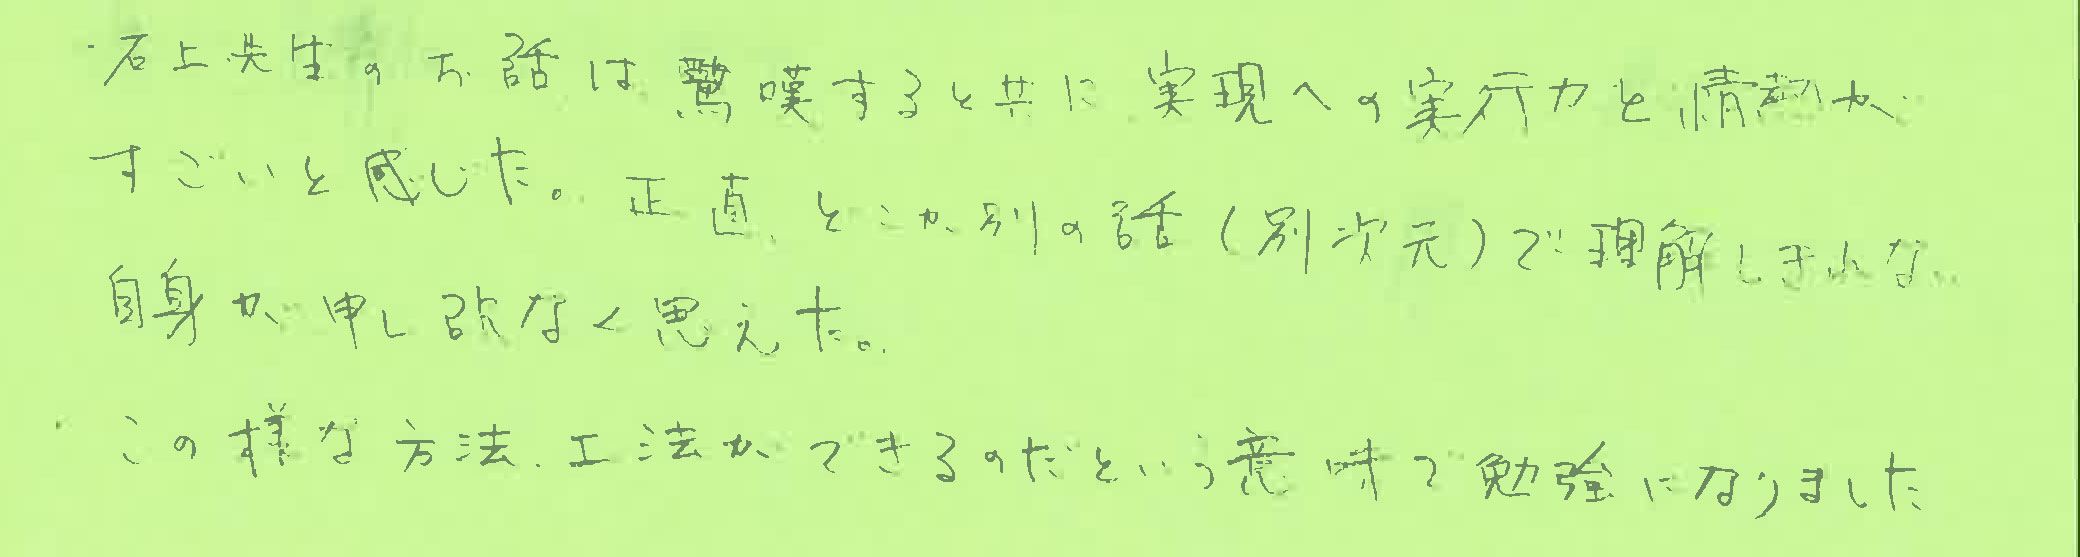 ・石上先生のお話は驚嘆すると共に、実現への実行力と情熱が
すごいと感じた。正直、どこか別の話(別次元)で理解しきれない
自身が申し訳なく思えた。
・この様な方法、工法ができるのだという意味で勉強になりました